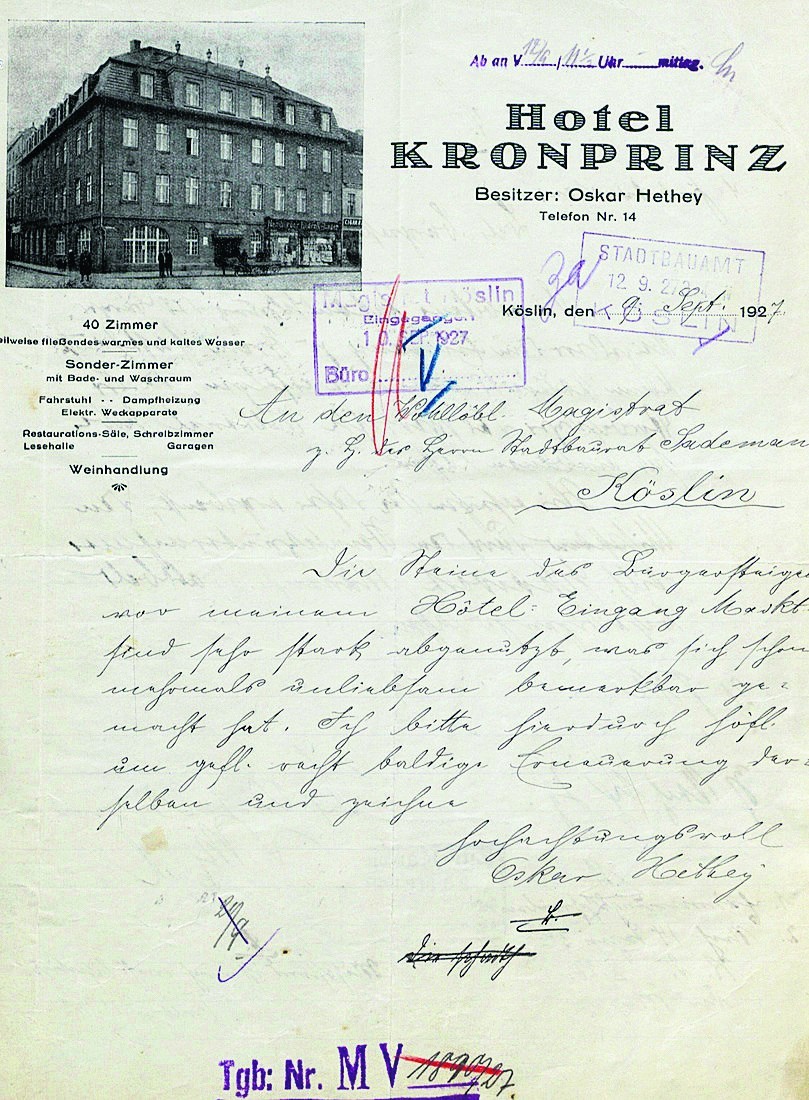 Ab an V. 12/9 / 11½ Uhr mittag.
Hotel
KRONPRINZ
Besitzer: Oskar Hethey
Telefon Nr. 14
STADTBAUAMT
12. 9. 27
KÖSLIN
Magistrat Köslin
Eingegangen
10. SEP. 1927
Büro
V
Köslin, den 9. Sept. 1927.
40 Zimmer
eilweise fließendes warmes und kaltes Wasser
Sonder-Zimmer
mit Bade- und Waschraum
Fahrstuhl -- Dampfheizung
Elektr. Weckapparate
Restaurations-Säle, Schreibzimmer
Lesehalle Garagen
Weinhandlung
An den Wohllöbl Magistrat
z. H. des Herrn Stadtbaurat Sademan
Köslin
Die Steine des Bürgersteiges
vor meinem Hôtel-Eingang Markt
sind sehr stark abgenutzt, was sich schon
mehrmals unliebsam bemerkbar ge=
macht hat. Ich bitte hierdurch höfl.
um gefl. recht baldige Erneuerung der=
selben und zeichne
hochachtungsvoll
Oskar Hethey
Tgb: Nr. M V 1890/27.